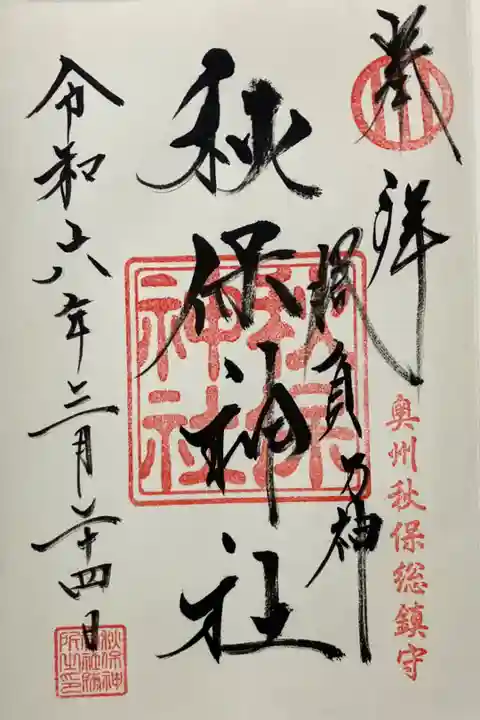 奉拝
勝負乃神
奥州秋保総鎮守
秋保神社
秋保
神社
令和六年三月二十四日
秋保神
社社務
所之印